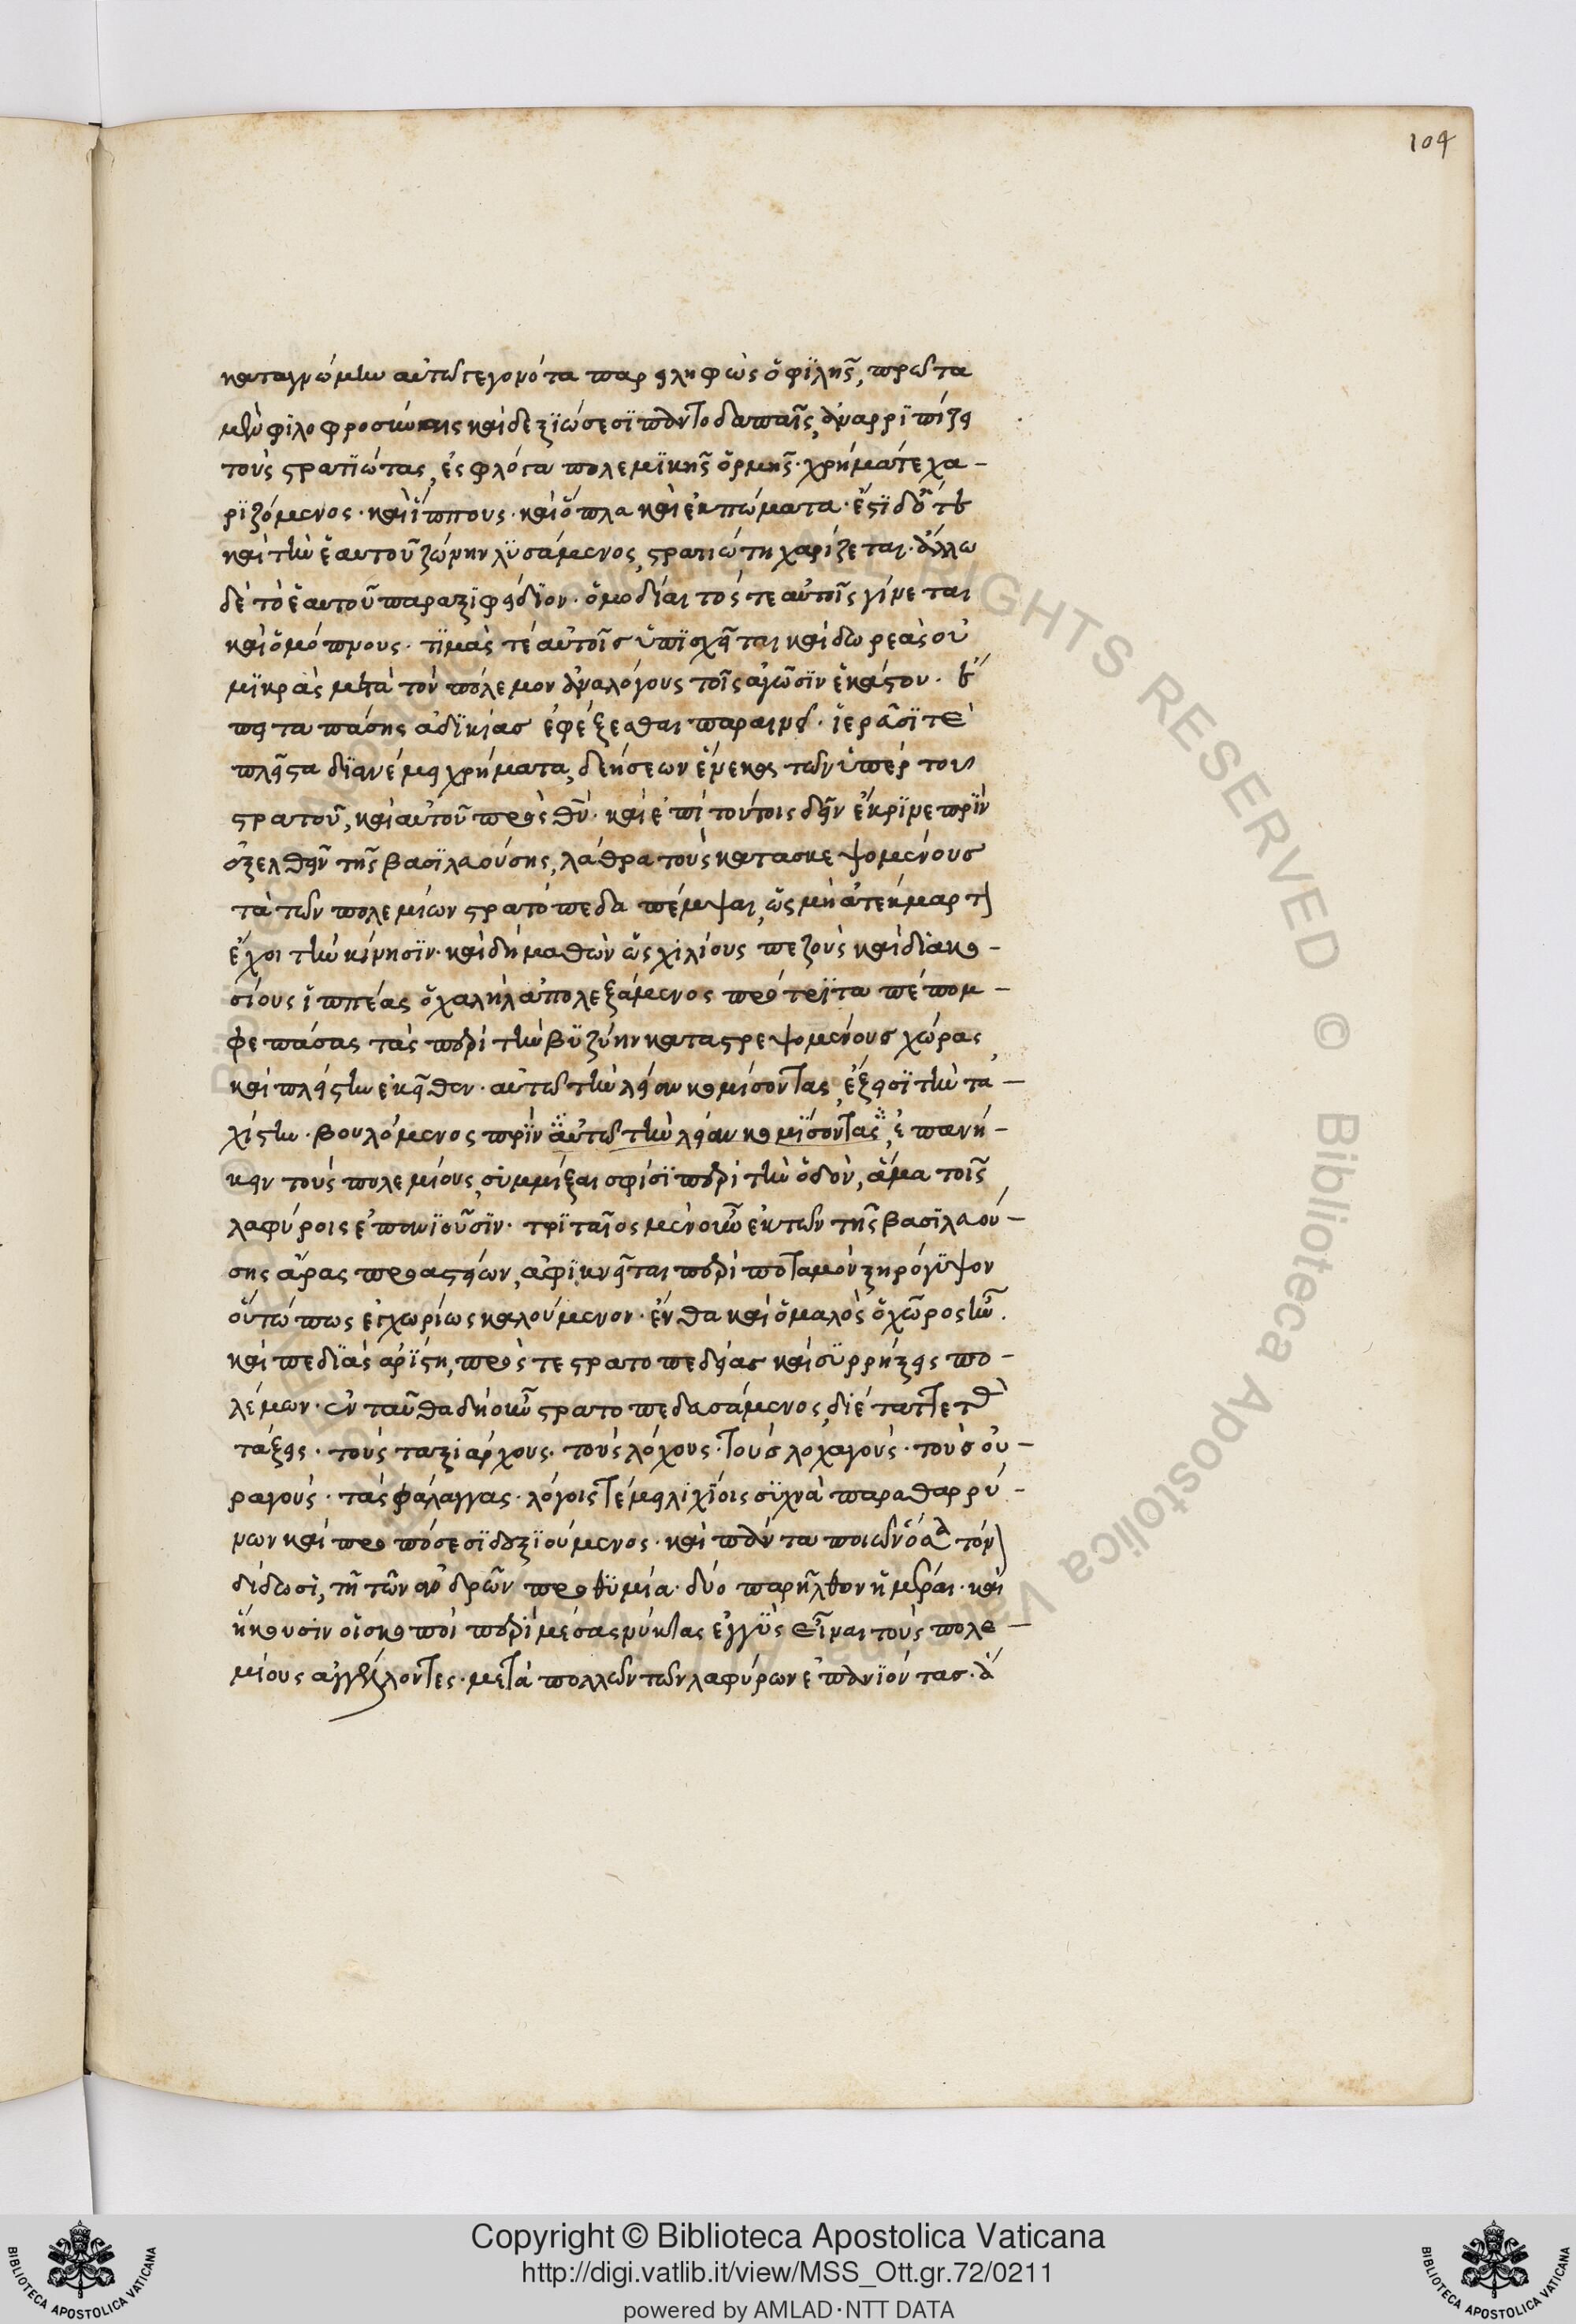 104
καταγνώμην αὐτῶ γεγονότα παρειληφὼς ὁ φϊλῆς, πρῶτα
μὲν φϊλοφροσύναις καὶ δεξϊώσεσϊ παντοδαπαῖς, ἀναρρϊπίζει
τοὺς στρατϊώτας, ἐς φλόγα πολεμϊκῆς ὁρμῆς· χρήματά τε χα-
ρϊζόμενος· καὶ ἵππους· καὶ ὅπλα καὶ ἐκπώματα· ἔστϊ δ' ὅτε
καὶ τὴν ἑαυτοῦ ζώνην λϋσάμενος, στρατιώτη χαρίζεται· ἄλλω
δὲ τὸ ἑαυτοῦ παραξϊφίδϊον· ὁμοδίαιτός τε αὐτοῖς γίνεται
καὶ ὁμόπνους· τϊμάς τε αὐτοῖς ὑπϊσχνεῖται καὶ δωρεὰς οὐ
μϊκρὰς μετὰ τὸν πόλεμον ἀναλόγους τοῖς ἀγῶσϊν ἑκάστου·
πάσης ἀδϊκίας ἀφέξεσθαι παραινεῖ· ἱερεῦσϊ τὲ
πλεῖστα δϊανέμει χρήματα, δεήσεων ἕνεκα τῶν ὑπὲρ τοῦ
στρατοῦ, καὶ αὐτοῦ πρὸς θν· καὶ ἐπὶ τούτοις δεῖν ἔκρϊνε πρὶν
ἐξελθεῖν τῆς βασϊλευούσης, λάθρα τοὺς κατασκεψομένους
τὰ τῶν πολεμίων στρατόπεδα πέμψαι, ὡς μὴ ἀτέκμαρτον
ἔχοι τὴν κίνησϊν· καὶ δὴ μαθὼν ὡς χιλίους πεζοὺς καὶ διακο-
σίους ἱππέας ὁ χαλὴλ ἀπολεξάμενος πρότρϊτα πέπομ-
φε πάσας τὰς περὶ τὴν βϋζύην καταστρεψομένους χώρας
καὶ πλείστην ἐκεῖθεν· αὐτῶ τὴν λείαν κομίσοντας, ἔξεισϊ τὴν τα-
χίστην· βουλόμενος πρὶν αὐτῶ τὴν λείαν κομϊσοντας, ἐπανή-
κειν τοὺς πολεμίους, συμμίξαι σφίσϊ περὶ τὴν ὁδὸν, ἅμα τοῖς
λαφύροις ἐπανϊοῦσϊν· τρϊταῖος μὲν οὖν ἐκ τῶν τῆς βασϊλευού-
σης ἄρας προαστείων, ἀφϊκνεῖται περὶ ποταμὸν ξηρόγϋψον
οὕτω πως ἐγχωρίως καλούμενον· ἔνθα καὶ ὁμαλὸς ὁ χῶρος ἦν.
καὶ πεδϊὰς ἀρίστη, πρός τε στρατοπεδείας καὶ σϋρρήξεις πο-
λέμων· ἐνταῦθα δὴ οὖν στρατοπεδευσάμενος, διέταττε τὰς
τάξεις· τοὺς ταξιάρχους· τοὺς λόχους· τοὺς λοχαγοὺς· τοὺς οὐ-
ραγούς· τὰς φάλαγγας· λόγοις τὲ μειλιχίοις σϋχνὰ παραθαρρύ-
νων καὶ προπόσεσϊ δεξϊούμενος· καὶ πάντα ποιῶν ὅσα τόνον
δίδωσϊ, τῆ τῶν ἀνδρῶν προθϋμία· δύο παρῆλθον ἡμέραι· καὶ
ἥκουσιν οἱ σκοποὶ περὶ μέσας νύκτας ἐγγϋς εἶναι τοὺς πολε-
μίους ἀγγέλλοντες· μετὰ πολλῶν τῶν λαφύρων ἐπανϊόντας·
Copyright © Biblioteca Apostolica Vaticana
http://digi.vatlib.it/view/MSS_Ott.gr.72/0211
powered by AMLAD·NTT DATA
BIBLIOTECA APOSTOLICA VATICANA
BIBLIOTECA APOSTOLICA VATICANA